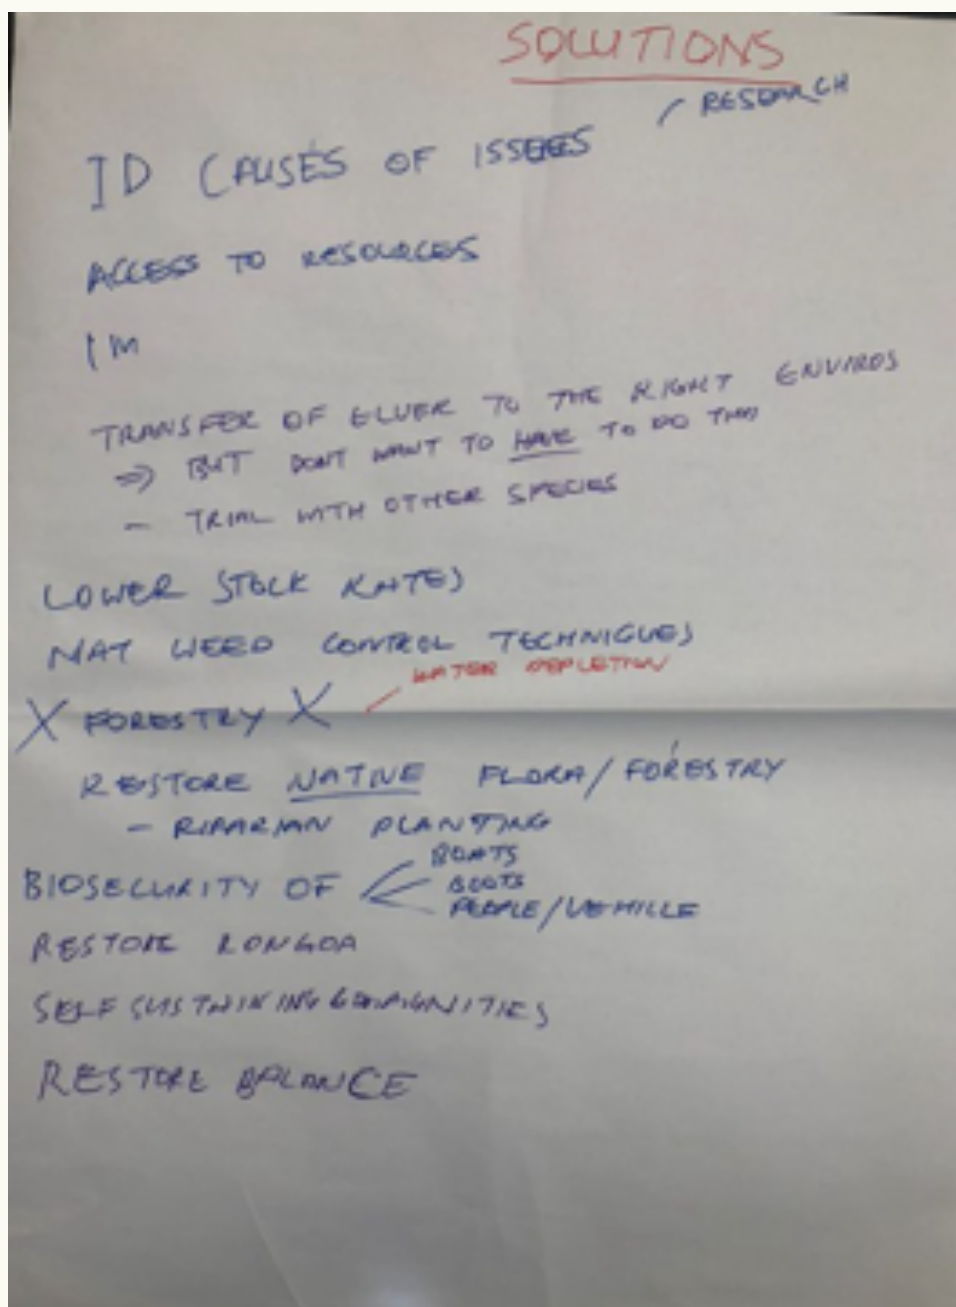 SOLUTIONS
/ RESEARCH
ID CAUSES OF ISSEES
ACCESS TO RESOURCES
I M
TRANSFER OF ELVER TO THE RIGHT ENVIROS
=> BUT DONT WANT TO HAVE TO DO THIS
- TRIAL WITH OTHER SPECIES
LOWER STOCK RATES
NAT WEED CONTROL TECHNIQUES
WATER DEPLETION
X FORESTRY X
RESTORE NATIVE FLORA/FORESTRY
- RIPARIAN PLANTING
BIOSECURITY OF
BOATS
BOOTS
PEOPLE/VEHICLE
RESTORE RONGOA
SELF SUSTAINING COMMUNITIES
RESTORE BALANCE